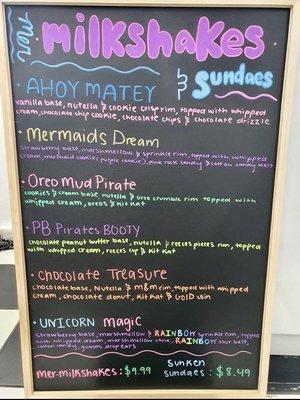 mer milkshakes
& Sundaes
• AHOY MATEY
vanilla base, nutella & cookie crisp rim, topped with whipped
cream, chocolate chip cookie, chocolate chips & chocolate drizzle
• Mermaids Dream
strawberry base, marshmellow & sprinkle rim, topped with whipped
cream, mermaid cookie (purple cookie), pink rock candy & cotton candy
• Oreo Mud Pirate
cookies & cream base, nutella & oreo crumble rim topped with
whipped cream, oreos & Kit Kat
• PB Pirates BOOTY
chocolate peanut butter base, nutella & reeces pieces rim, topped
with whipped cream, reeces cup & Kit Kat
• Chocolate Treasure
chocolate base, Nutella & m&m rim, topped with whipped
cream, chocolate donut, Kit Kat & Gold coin
• UNICORN magic
strawberry base, marshmellow & RAINBOW sprinkle rim, topped
with whipped cream, marshmellow cone, RAINBOW sour belt,
cotton candy, gummi
mer-milkshakes: $9.99
Sunken
sundaes: $8.49